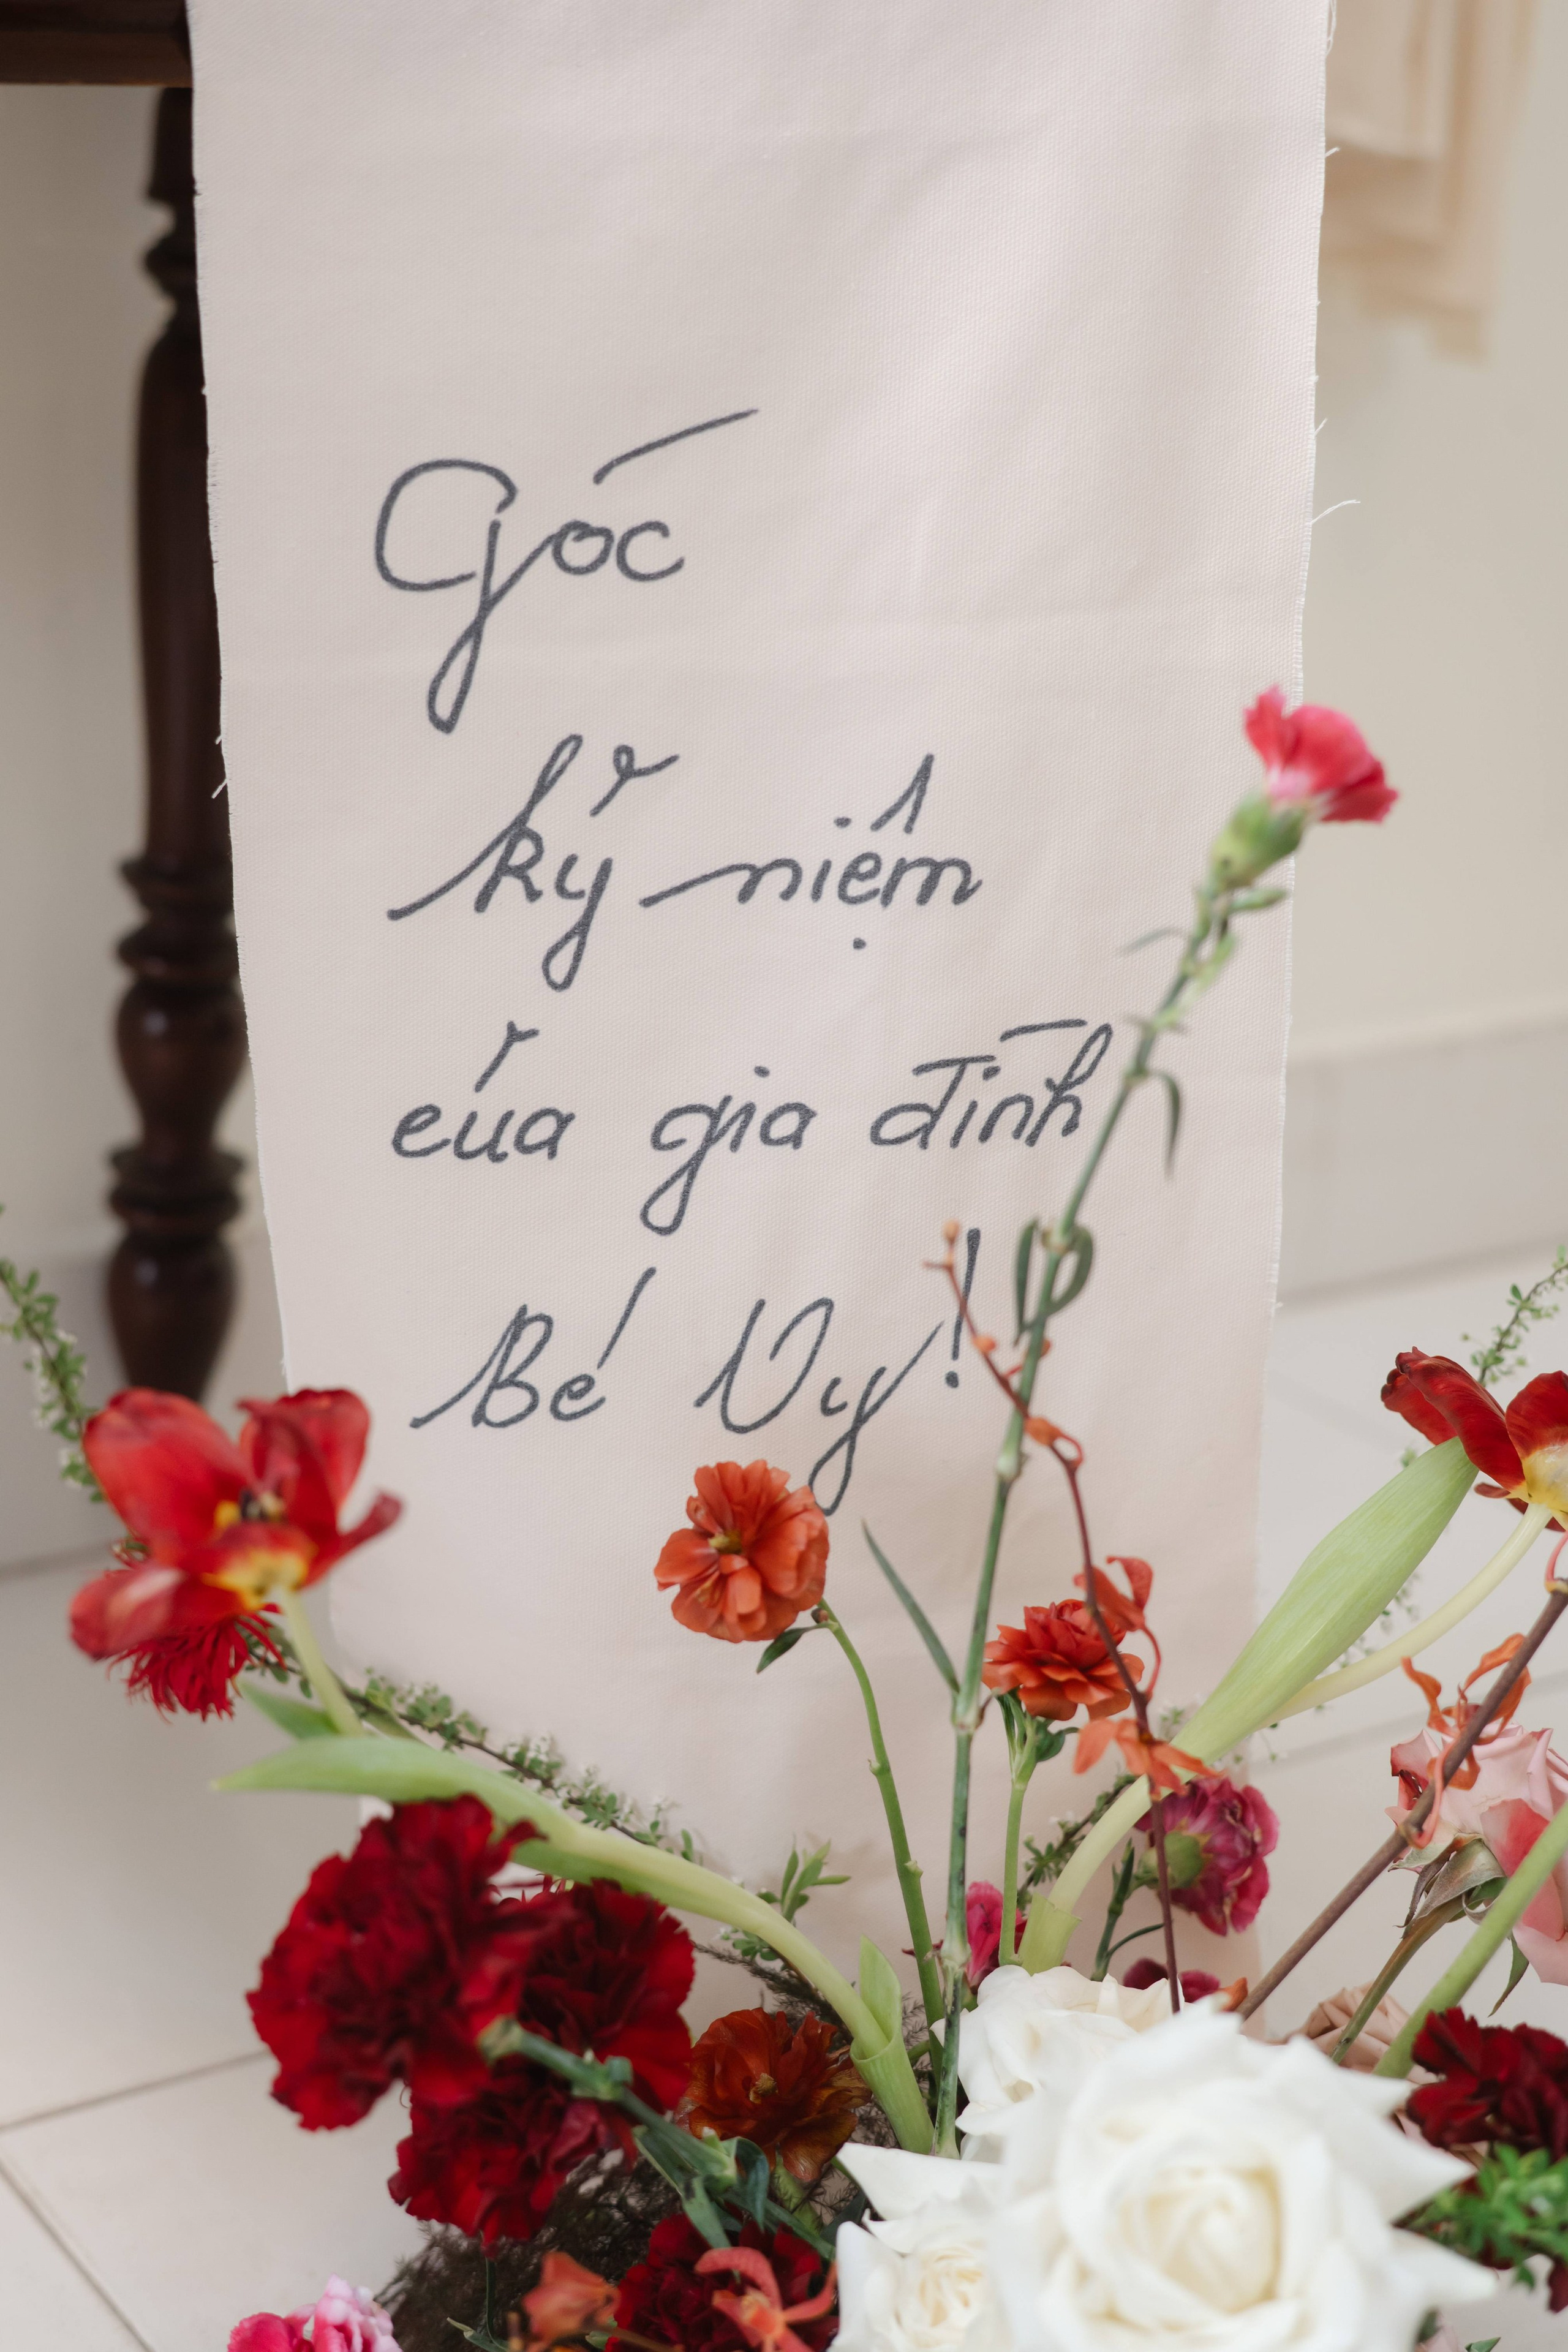 Góc
kỷ niệm
của gia đình
Bé Vy!